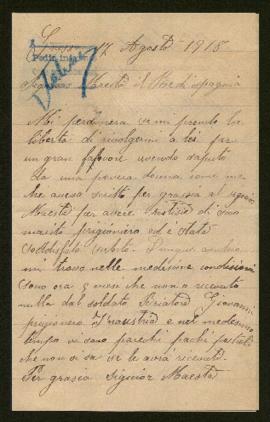 17 Agosto 1918
Pedir
Maestà il Re di Spagna
Mi perdonera se mi prendo la
libertà di rivolgermi a lei per
un gran favore avendo saputo
da una povera donna come me
che aveva scritto per grazia al signor
Maestà per avere notizie di suo
marito prigioniero ed è stata
soddisfata subito. Dunque anche
mi trovo nelle medesime condissioni
sono ora 9 mesi che non o ricevuto
nulla dal soldato Giovanni
prigionero d'Inaustria e nel medesimo
tempo o dato parechi pachi postali
che non si sa se le avrà ricevuti.
Per grasia Signior Maestà